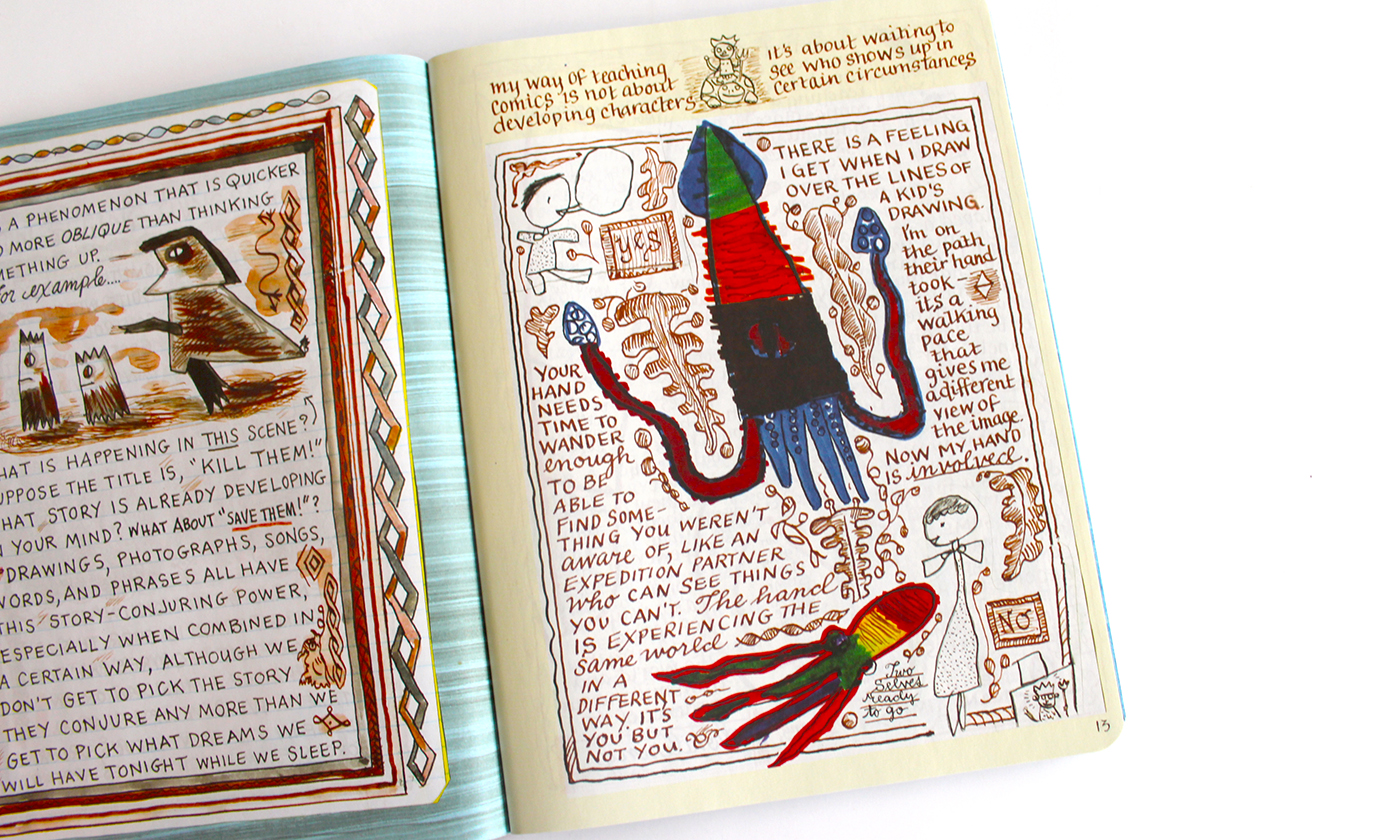 A PHENOMENON THAT IS QUICKER
MORE OBLIQUE THAN THINKING
UP.
for example....
IS HAPPENING IN THIS SCENE?
THE TITLE IS, "KILL THEM!"
STORY IS ALREADY DEVELOPING
YOUR MIND? WHAT ABOUT "SAVE THEM!"?
DRAWINGS, PHOTOGRAPHS, SONGS,
WORDS, AND PHRASES ALL HAVE
THIS STORY-CONJURING POWER,
ESPECIALLY WHEN COMBINED IN
A CERTAIN WAY, ALTHOUGH WE
DON'T GET TO PICK THE STORY
THEY CONJURE ANY MORE THAN WE
GET TO PICK WHAT DREAMS WE
WILL HAVE TONIGHT WHILE WE SLEEP.
my way of teaching
comics is not about
developing characters
it's about waiting to
see who shows up in
certain circumstances
yes
THERE IS A FEELING
I GET WHEN I DRAW
OVER THE LINES OF
A KID'S
DRAWING.
I'm on
the path
their hand
took—
it's a
walking
pace
that
gives me
a different
view of
the image.
NOW MY HAND
IS involved.
YOUR
HAND
NEEDS
TIME TO
WANDER
enough
TO BE
ABLE TO
FIND SOME-
THING YOU WEREN'T
aware OF, LIKE AN
EXPEDITION PARTNER
who CAN SEE THINGS
YOU CAN'T. The hand
IS EXPERIENCING THE
same world
IN A
DIFFERENT
WAY. IT'S
YOU BUT
NOT YOU.
NO
Two
Selves
ready
to go
13